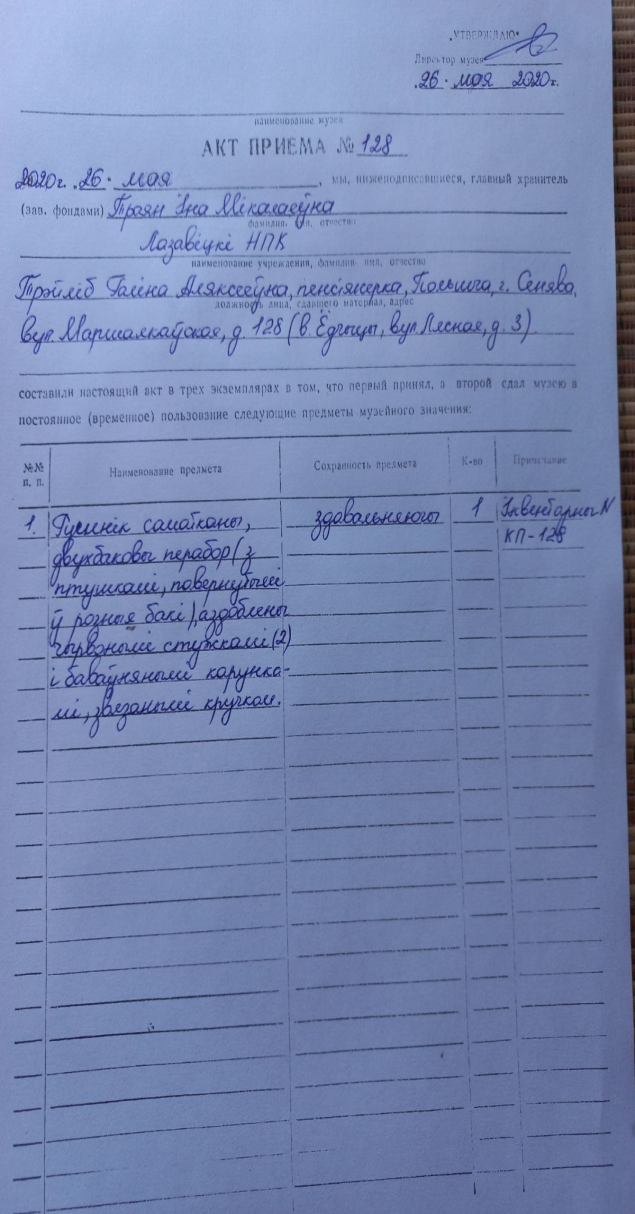 „УТВЕРЖДАЮ“
Директор музея
„26“ мая 2020г.
наименование музея
АКТ ПРИЕМА № 128
2020 г. „26“ мая , мы, нижеподписавшиеся, главный хранитель
(зав. фондами) Траян Іна Мікалаеўна
фамилия, имя, отчество
Лазавіцкі НПК
наименование учреждения, фамилия, имя, отчество
Галіна Аляксееўна, пенсіянерка, Польшча, г. Сенява,
должность лица, сдавшего материал, адрес
вул. Маршалкаўская, д. 128 (в. вул. Лясная, д. 3)
составили настоящий акт в трех экземплярах в том, что первый принял, а второй сдал музею в
постоянное (временное) пользование следующие предметы музейного значения:
№№ п. п. Наименование предмета Сохранность предмета К-во Примечание
1. саматканы, здавальняючы 1 Інвентарны N
двухбаковы перабор (з КП-128
птушкамі, павернутымі
ў розныя бакі), аздоблены
чырвонымі стужкамі (2)
і баваўнянымі карунка-
мі, звязанымі кручком.